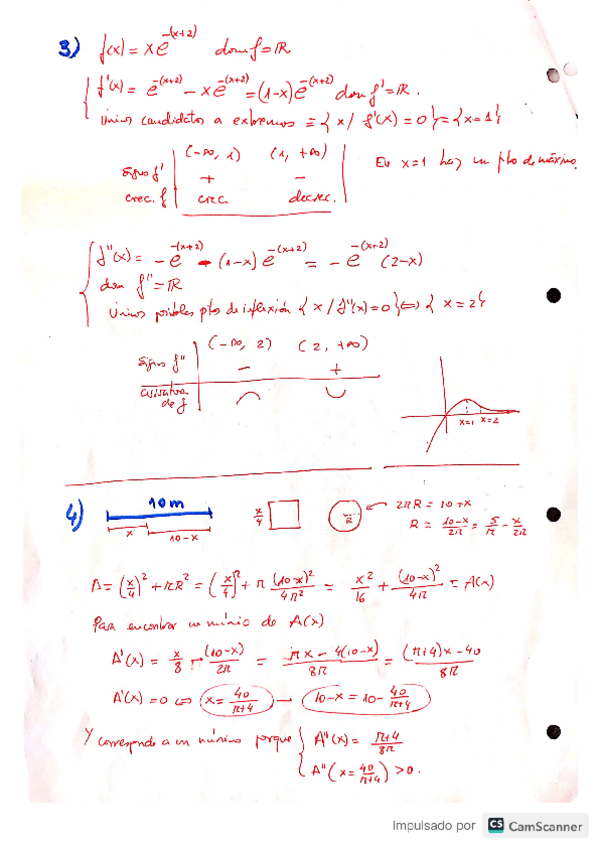 3) f(x) = x e^-(x+2)   dom f = ℝ
f'(x) = e^-(x+2) - x e^-(x+2) = (1-x) e^-(x+2)   dom f' = ℝ.
Únicos candidatos a extremos ≡ { x / f'(x) = 0 } = { x = 1 }
(-∞, 1)   (1, +∞)
Signo f'   +   -
En x=1 hay un pto de máximo.
crec. f   crec.   decrec.
f''(x) = -e^-(x+2) - (1-x) e^-(x+2) = -e^-(x+2) (2-x)
dom f'' = ℝ
Únicos posibles ptos de inflexión { x / f''(x) = 0 } ⇔ { x = 2 }
(-∞, 2)   (2, +∞)
Signo f''   -   +
curvatura de f   ⌒   ⌣
x=1   x=2
4) 10 m
x   10-x
x/4
R
2πR = 10-x
R = (10-x)/2π = 5/π - x/2π
A = (x/4)² + πR² = (x/4)² + π (10-x)²/4π² = x²/16 + (10-x)²/4π = A(x)
Para encontrar un mínimo de A(x)
A'(x) = x/8 - (10-x)/2π = (πx - 4(10-x))/8π = ((π+4)x - 40)/8π
A'(x) = 0 ⇔ x = 40/(π+4) — 10-x = 10 - 40/(π+4)
Y corresponde a un mínimo porque { A''(x) = (π+4)/8π
A''(x = 40/(π+4)) > 0.
Impulsado por CS CamScanner